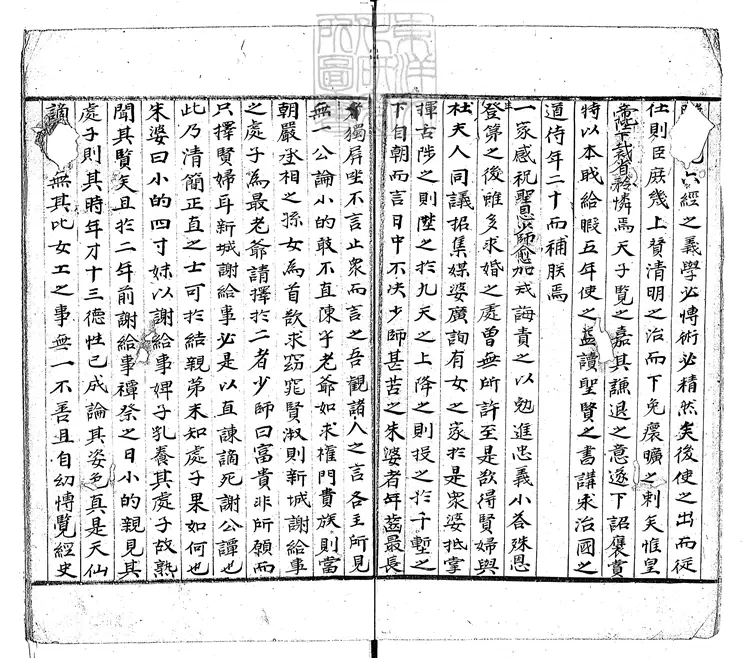 六經之義學必博術必精然矣後使之出而從
仕則臣庶幾上贊清明之治而下免癏曠之刺矣惟皇
帝陛下裁省矜憐焉天子覽之嘉其謙退之意遂下詔褒賞
特以本戢給暇五年使之益讀聖賢之書講求治國之
道待年二十而補朕焉
一家感祝聖恩少師愈加戒誨責之以勉進忠義小荅殊恩
登第之後雖多求婚之處曾無所許至是欲得賢婦與
杜夫人同議招集媒婆廣詢有女之家於是衆婆抵掌
揮舌陟之則陞之於九天之上降之則投之於千塹之
下自朝而言日中不决少師甚苦之朱婆者年齒最長
者獨屏坐不言止衆而言之吾觀諸人之言各主所見
無一公論小的敢不直陳乎老爺如求權門貴族則當
朝嚴丞相之孫女為首欲求窈窕賢淑則新城謝給事
之處子為最老爺請擇於二者少師曰富貴非所願而
只擇賢婦耳新城謝給事必是以直諫謫死謝公譚也
此乃清簡正直之士可於結親弟未知處子果如何也
朱婆曰小的四寸妹以謝給事婢子乳養其處子故熟
聞其賢矣且於二年前謝給事禫祭之日小的親見其
處子則其時年才十三德性已成論其姿色真是天仙
謫無其比女工之事無一不善且自幼博覽經史